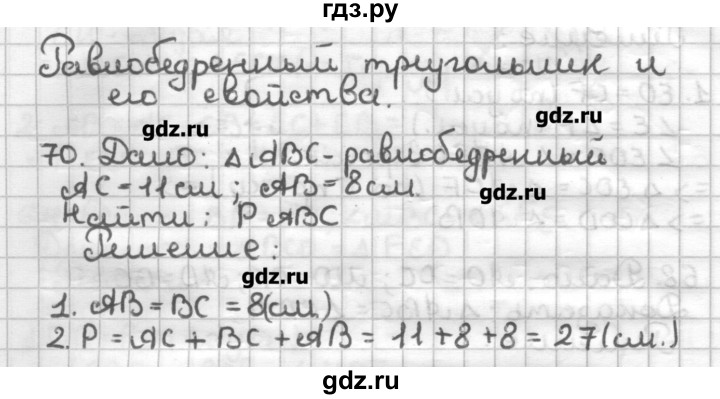 гдз.ру
Равнобедренный треугольник и
его свойства.
gdz.ru
gdz.ru
70. Дано: △ ABC - равнобедренный
AC = 11 см ; AB = 8 см.
gdz.ru
Найти : P ABC
Решение :
gdz.ru
1. AB = BC = 8(см.)
2. P = AC + BC + AB = 11 + 8 + 8 = 27(см.)
gdz.ru